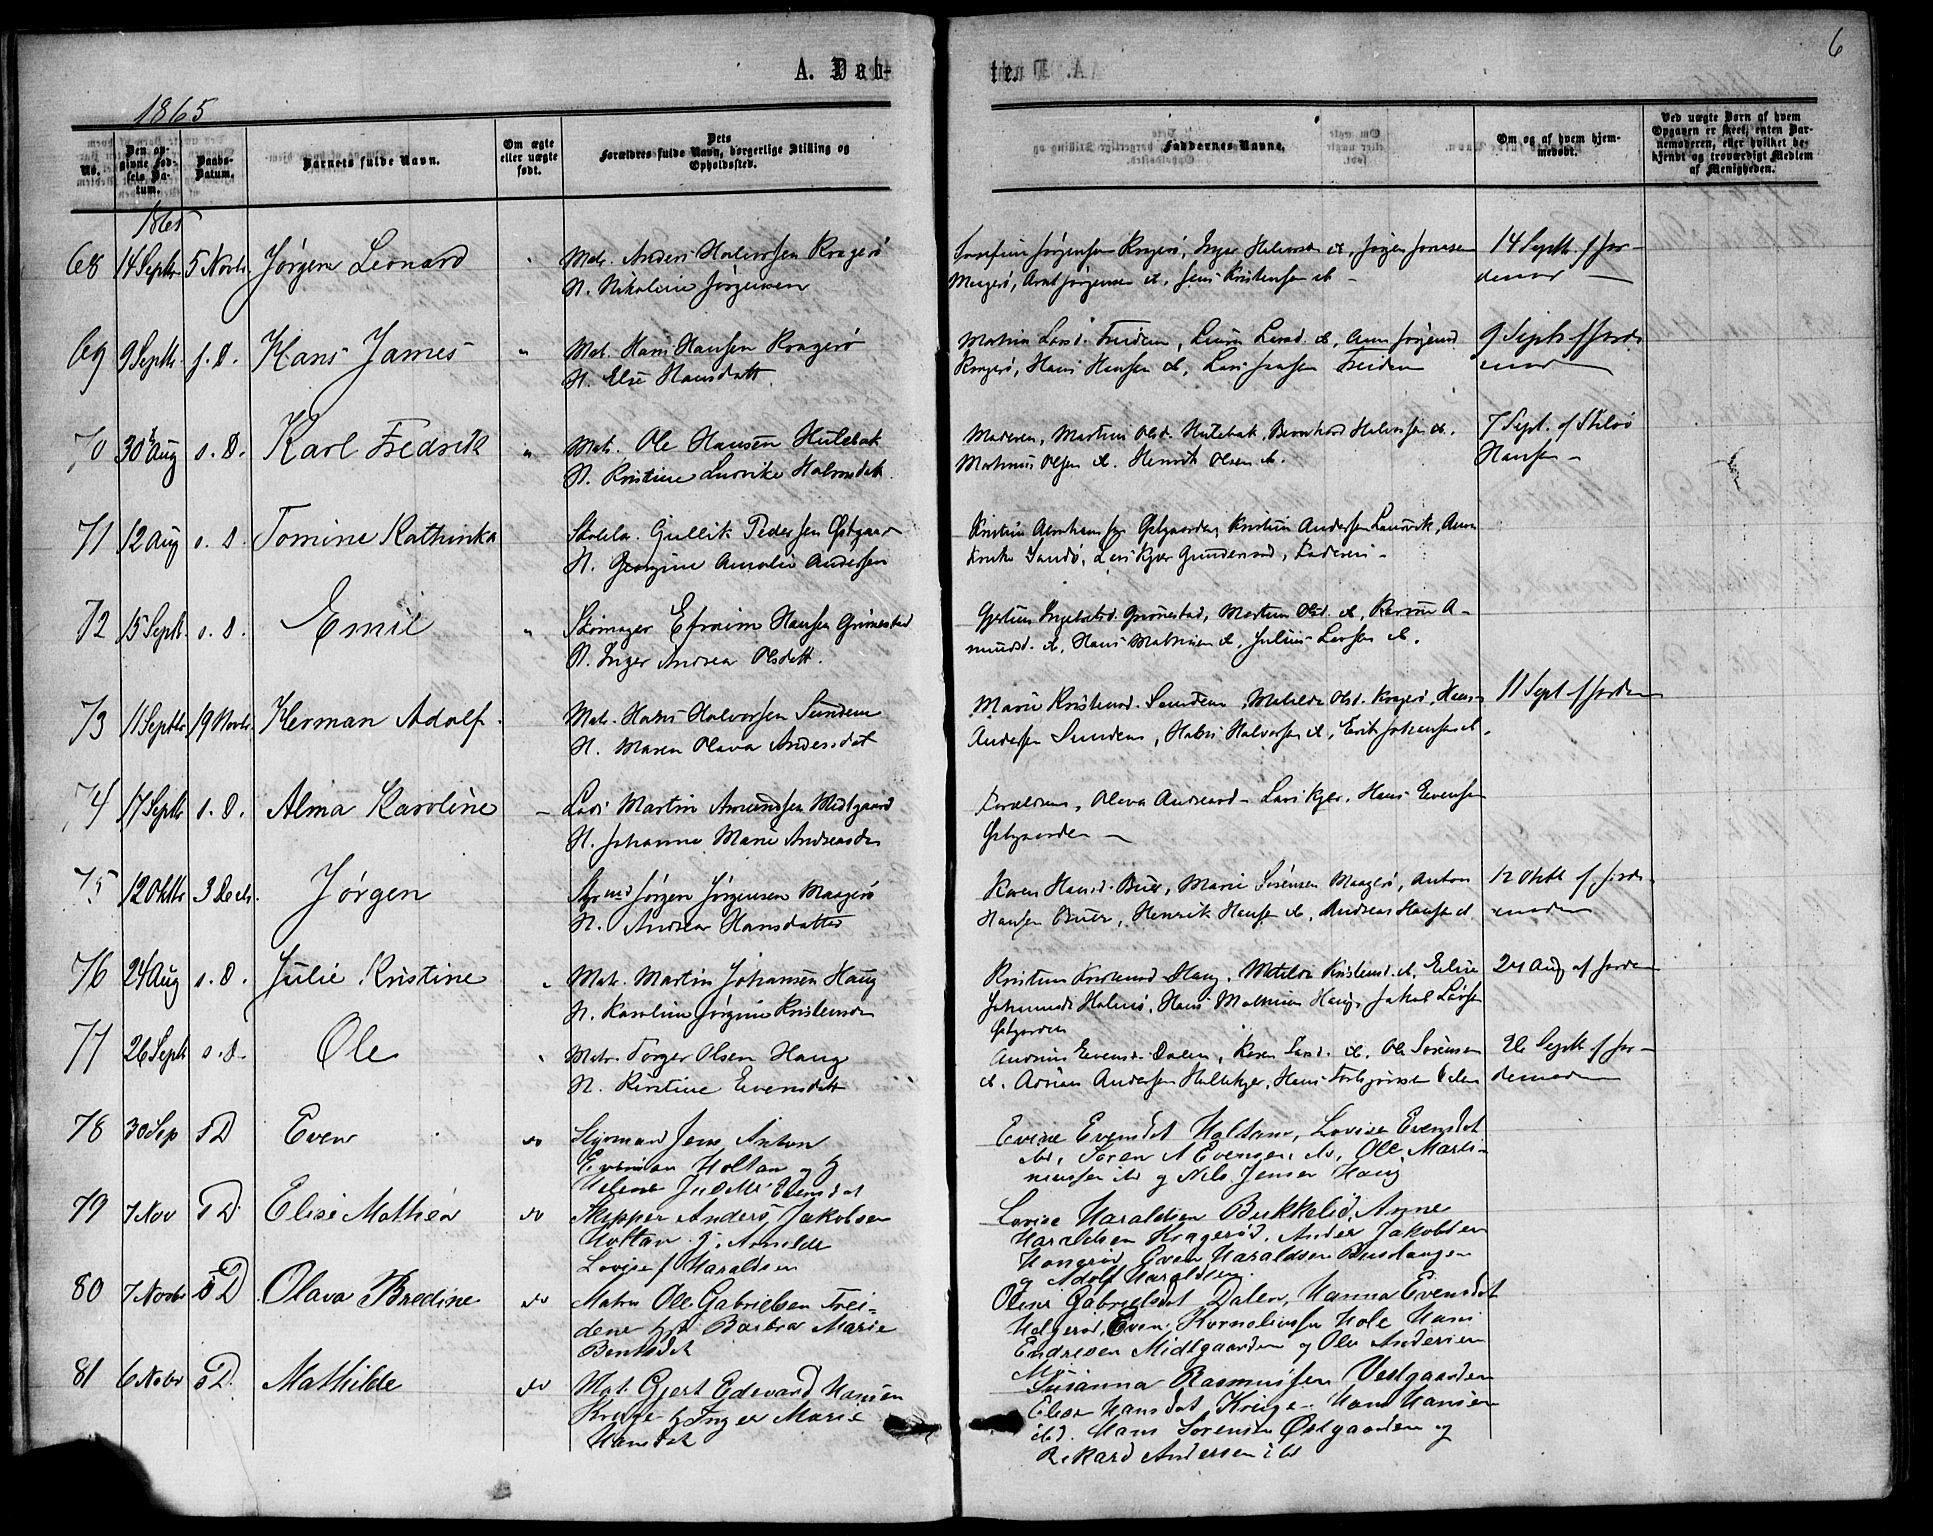 6
A. Dåb-
ten.
1865
No.
Den an-
givne Fød-
sels Da-
tum.
Daabs-
Datum.
Barnets fulde Navn.
Om ægte
eller uægte
født.
Dets
Forældres fulde Navn, borgerlige Stilling og
Opholdssted.
Faddernes Navne.
Om og af hvem hjem-
medøbt.
Ved uægte Børn af hvem
Opgaven er skeet, enten Bar-
nemoderen, eller hvilket be-
kjendt og troværdigt Medlem
af Menigheden.
1865
68 14 Septbr 5 Novbr. Jørgen Leonard " Matr. Anders Halvorsen Kragerø
H. Nikoline Jørgensen
Jørgensen Kragerø, Inger Halvorsen do, Jørgen
Magerø, Arnt Jørgensen do, Jens Kristensen do
14 Septb. f Jor-
demod
69 9 Septbr. s. D. Hans James " Mat. Hans Hansen Kragerø
H. Else Hansdatt.
Larsd. Treiden, Larsd. do, Anne Jørgensd
Kragerø, Hans Hansen do, Lars Treiden
9 Septb. f Jorde
mod
70 30 Aug s. D. Karl Fredrik " Mat. Ole Hansen Hulebak
H. Kristine Lurvike Halvorsdatt.
Moderen, Olsd. Hulebak, Bernhard Halvorsen do.
Martinus Olsen do. Henrik Olsen do.
7 Sept. af
Hansen
71 12 Aug s. D. Tomine Kathinka Skolela. Gullik Pedersen Østgaar
H. Georgine Amalie Andersen
Kristine Abrahamsen Østgaarden, Kristine Andersen Laurvik, Anne
Sandø, Lars Kjær Gundersen, Faderen
72 15 Septb. s. D. Emil " Skomager Efraim Hansen Grimestad
H. Inger Andrea Olsdatt.
Ingebretsd. Grimestad, Martine Olsd. do, A-
mundsd. do, Hans Mathisen do, Julius Larsen do.
73 11 Septbr. 19 Novbr. Herman Adolf. Matr. Hans Halvorsen Sunden
H. Maren Olava Andersdat
Marie Kristensd. Sunden, Matilde Olsd. Kragerø, Hans
Andersen Sunden, Halvorsen do, Erik Johansen do.
11 Sept f Jordem
74 17 Septbr s. D. Alma Karoline Lods Martin Amundsen Midtgaard
H. Johanne Marie Andreasda
Forældrene, Olava Andreasd. Lars Kjær, Hans Evensen
Østgaarden
75 12 Oktbr 3 Decbr. Jørgen Styrmd Jørgen Jørgensen Maagerø
H. Andrea Hansdatter
Karen Hansd. Buer, Marie Sørensen Maagerø, Anton
Hansen Buer, Henrik Hansen do, Andreas Hansen do
12 Oktb. f Jorde-
moder
76 24 Aug s. D. Julie Kristine Matr. Martin Johansen Haug
H. Karoline Jørgine Kristensda
Kristine Kristensd Haug, Matilde Kristensd. do, Eline
Johannesd. Holmø, Hans Mathisen Haug, Jakob Larsen
Østgarden
24 Aug af Jordem
77 26 Septb s. D. Ole Matr. Torger Olsen Haug
H. Kirstine Evensdatt
Andrine Evensd. Dalen, Karen do. Ole Sørensen
do. Adrian Andersen Hellekjær, Hans Torbjørnsen Dalen
26 Septb. f Jor-
demoderen
78 30 Sep s D Even do Styrmand Jens Anton
Evensen Holtan og H
Helene Evensdat
Evine Evensdat Holtane, Lovise Evensdat
do, Søren A Evensen, do, Ole Marti-
niussen do og Nils Jensen Haug
79 7 Nov s D. Elise Mathea do Skipper Anders Jakobsen
Holtan H. Arnilde
Lovise f Haraldsen
Lovise Haraldsen Bukkelid, Anne
Haraldsen Kragerød, Anders Jakobsen
Even Haraldsen
og Adolf Haraldsen.
80 7 Novbr s D Olava Bredine do Matrs Ole Gabrielsen Trei-
dene Barbra Marie
Berntsdat
Oline Gabrielsdat Dalen, Hanna Evensdat
Helgerød, Even Korneliussen Hole Hans
Endresen Midtgaarden og Ole Andersen
81 6 Nobr s D. Mathilde do Mat. Gjert Edevard Hansen
Kruge H Inger Marie
Hansdat
Susanna Rasmussen Vestgaarden
Elise Hansdat Kruge. Hans Hansen
ibd. Hans Sørensen Østgaarden og
Rikard Andersen ibd